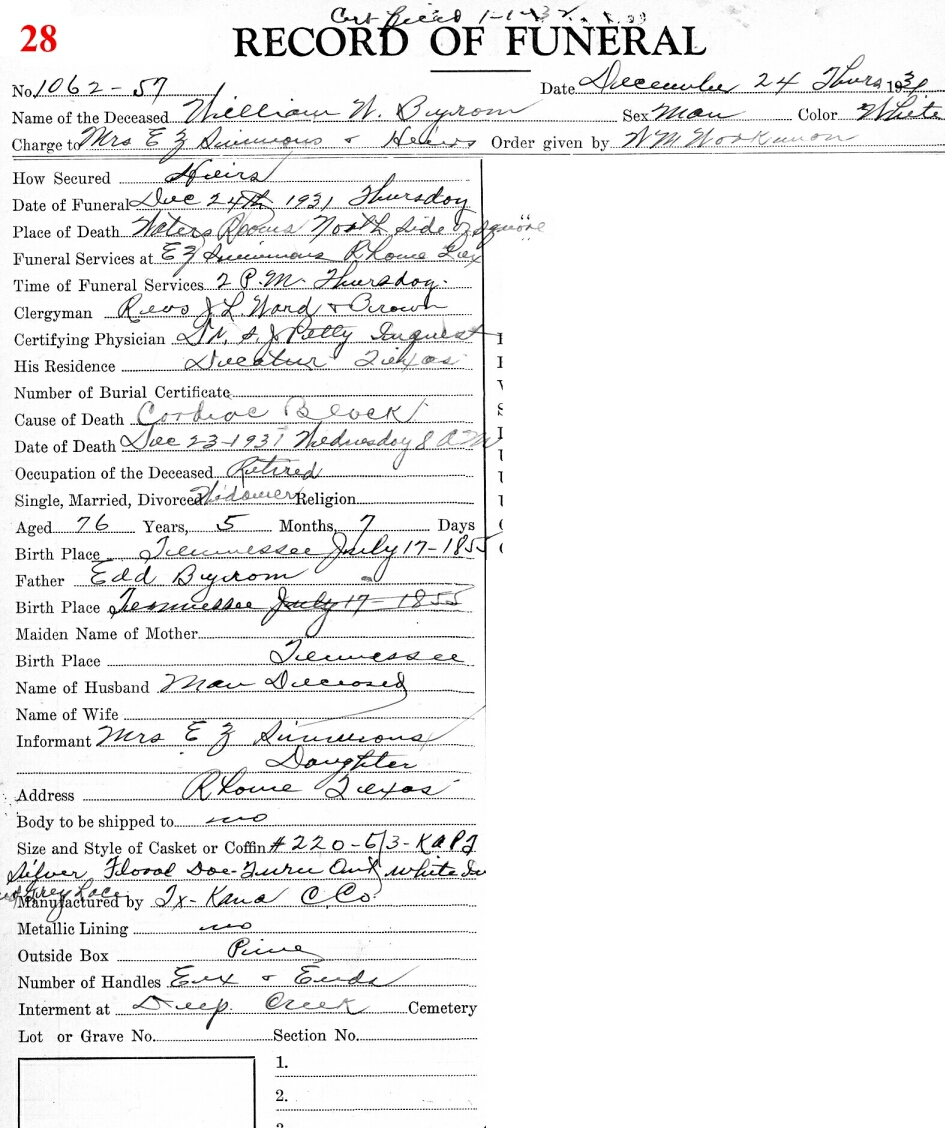 28
Cert filed 1-1-32
RECORD OF FUNERAL
No. 1062-57 Date December 24 Thurs 1931
Name of the Deceased William W. Byrom Sex Man Color White
Charge to Mrs E Z Simmons & Heirs Order given by W M Workman
How Secured Heirs
Date of Funeral Dec 24th 1931 Thursday
Place of Death Waters Rooms North Side of Square
Funeral Services at E Z Simmons Rhome Tex
Time of Funeral Services 2 P.M. Thursday.
Clergyman Revs J L Ward & Brown
Certifying Physician Dr. S. J. Petty Inquest
His Residence Decatur Texas
Number of Burial Certificate
Cause of Death Cardiac Block
Date of Death Dec 23-1931 Wednesday 8 A.M
Occupation of the Deceased Retired
Single, Married, Divorced Widower Religion
Aged 76 Years, 5 Months, 7 Days
Birth Place Tennessee July 17-1855
Father Edd Byrom
Birth Place Tennessee July 17-1855
Maiden Name of Mother
Birth Place Tennessee
Name of Husband Man Deceased
Name of Wife
Informant Mrs E Z Simmons
Daughter
Address Rhome Texas
Body to be shipped to no
Size and Style of Casket or Coffin #220-6/3-
Silver Floral Doe- white
Grey Lace
Manufactured by Tx-Kana C. Co.
Metallic Lining no
Outside Box Pine
Number of Handles & Ends
Interment at Deep Creek Cemetery
Lot or Grave No. Section No.
1.
2.